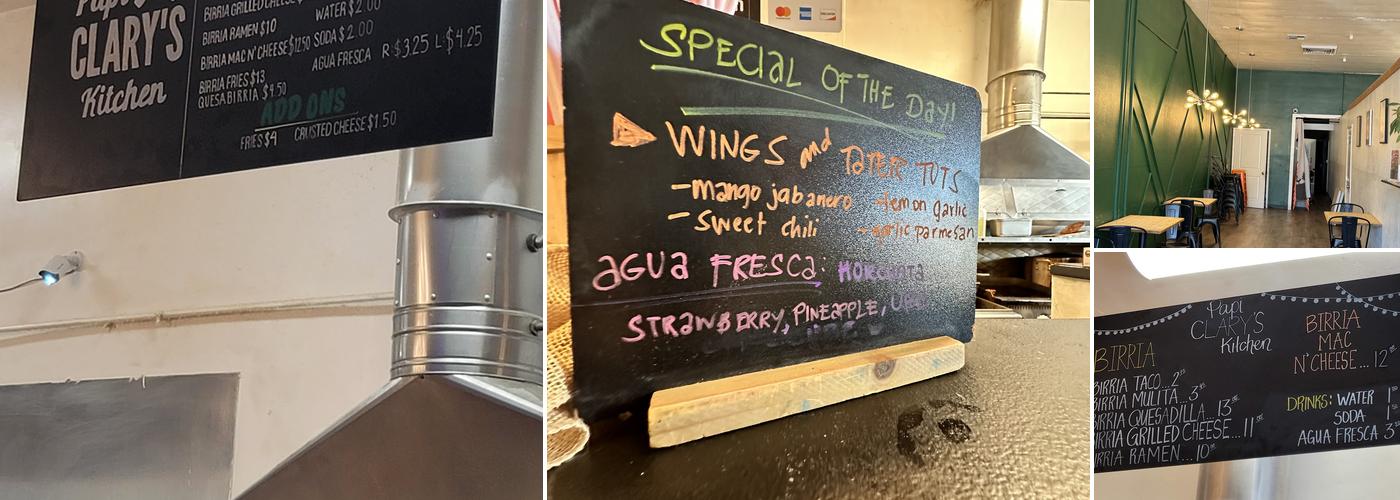 Papi
CLARY'S
Kitchen
BIRRIA GRILLED CHEESE
WATER $2.00
BIRRIA RAMEN $10
BIRRIA MAC N' CHEESE $12.50 SODA $2.00
AGUA FRESCA R $3.25 L $4.25
BIRRIA FRIES $13
QUESABIRRIA $4.50
ADD ONS
FRIES $4 CRUSTED CHEESE $1.50
SPECIAL OF THE Day!
WINGS and TaTER TOTS
-mango jabanero -lemon garlic
- Sweet chili -garlic parmesan
AGUA FRESCA: HORCHATA
STRAWBERRY, PINEAPPLE,
Papi
CLARY'S
Kitchen
BIRRIA
BIRRIA TACO...2
BIRRIA MULITA...3
BIRRIA QUESADILLA...13
BIRRIA GRILLED CHEESE...11
BIRRIA RAMEN...10
BIRRIA
MAC
N'CHEESE...12
DRINKS: WATER 1
SODA 1
AGUA FRESCA 3